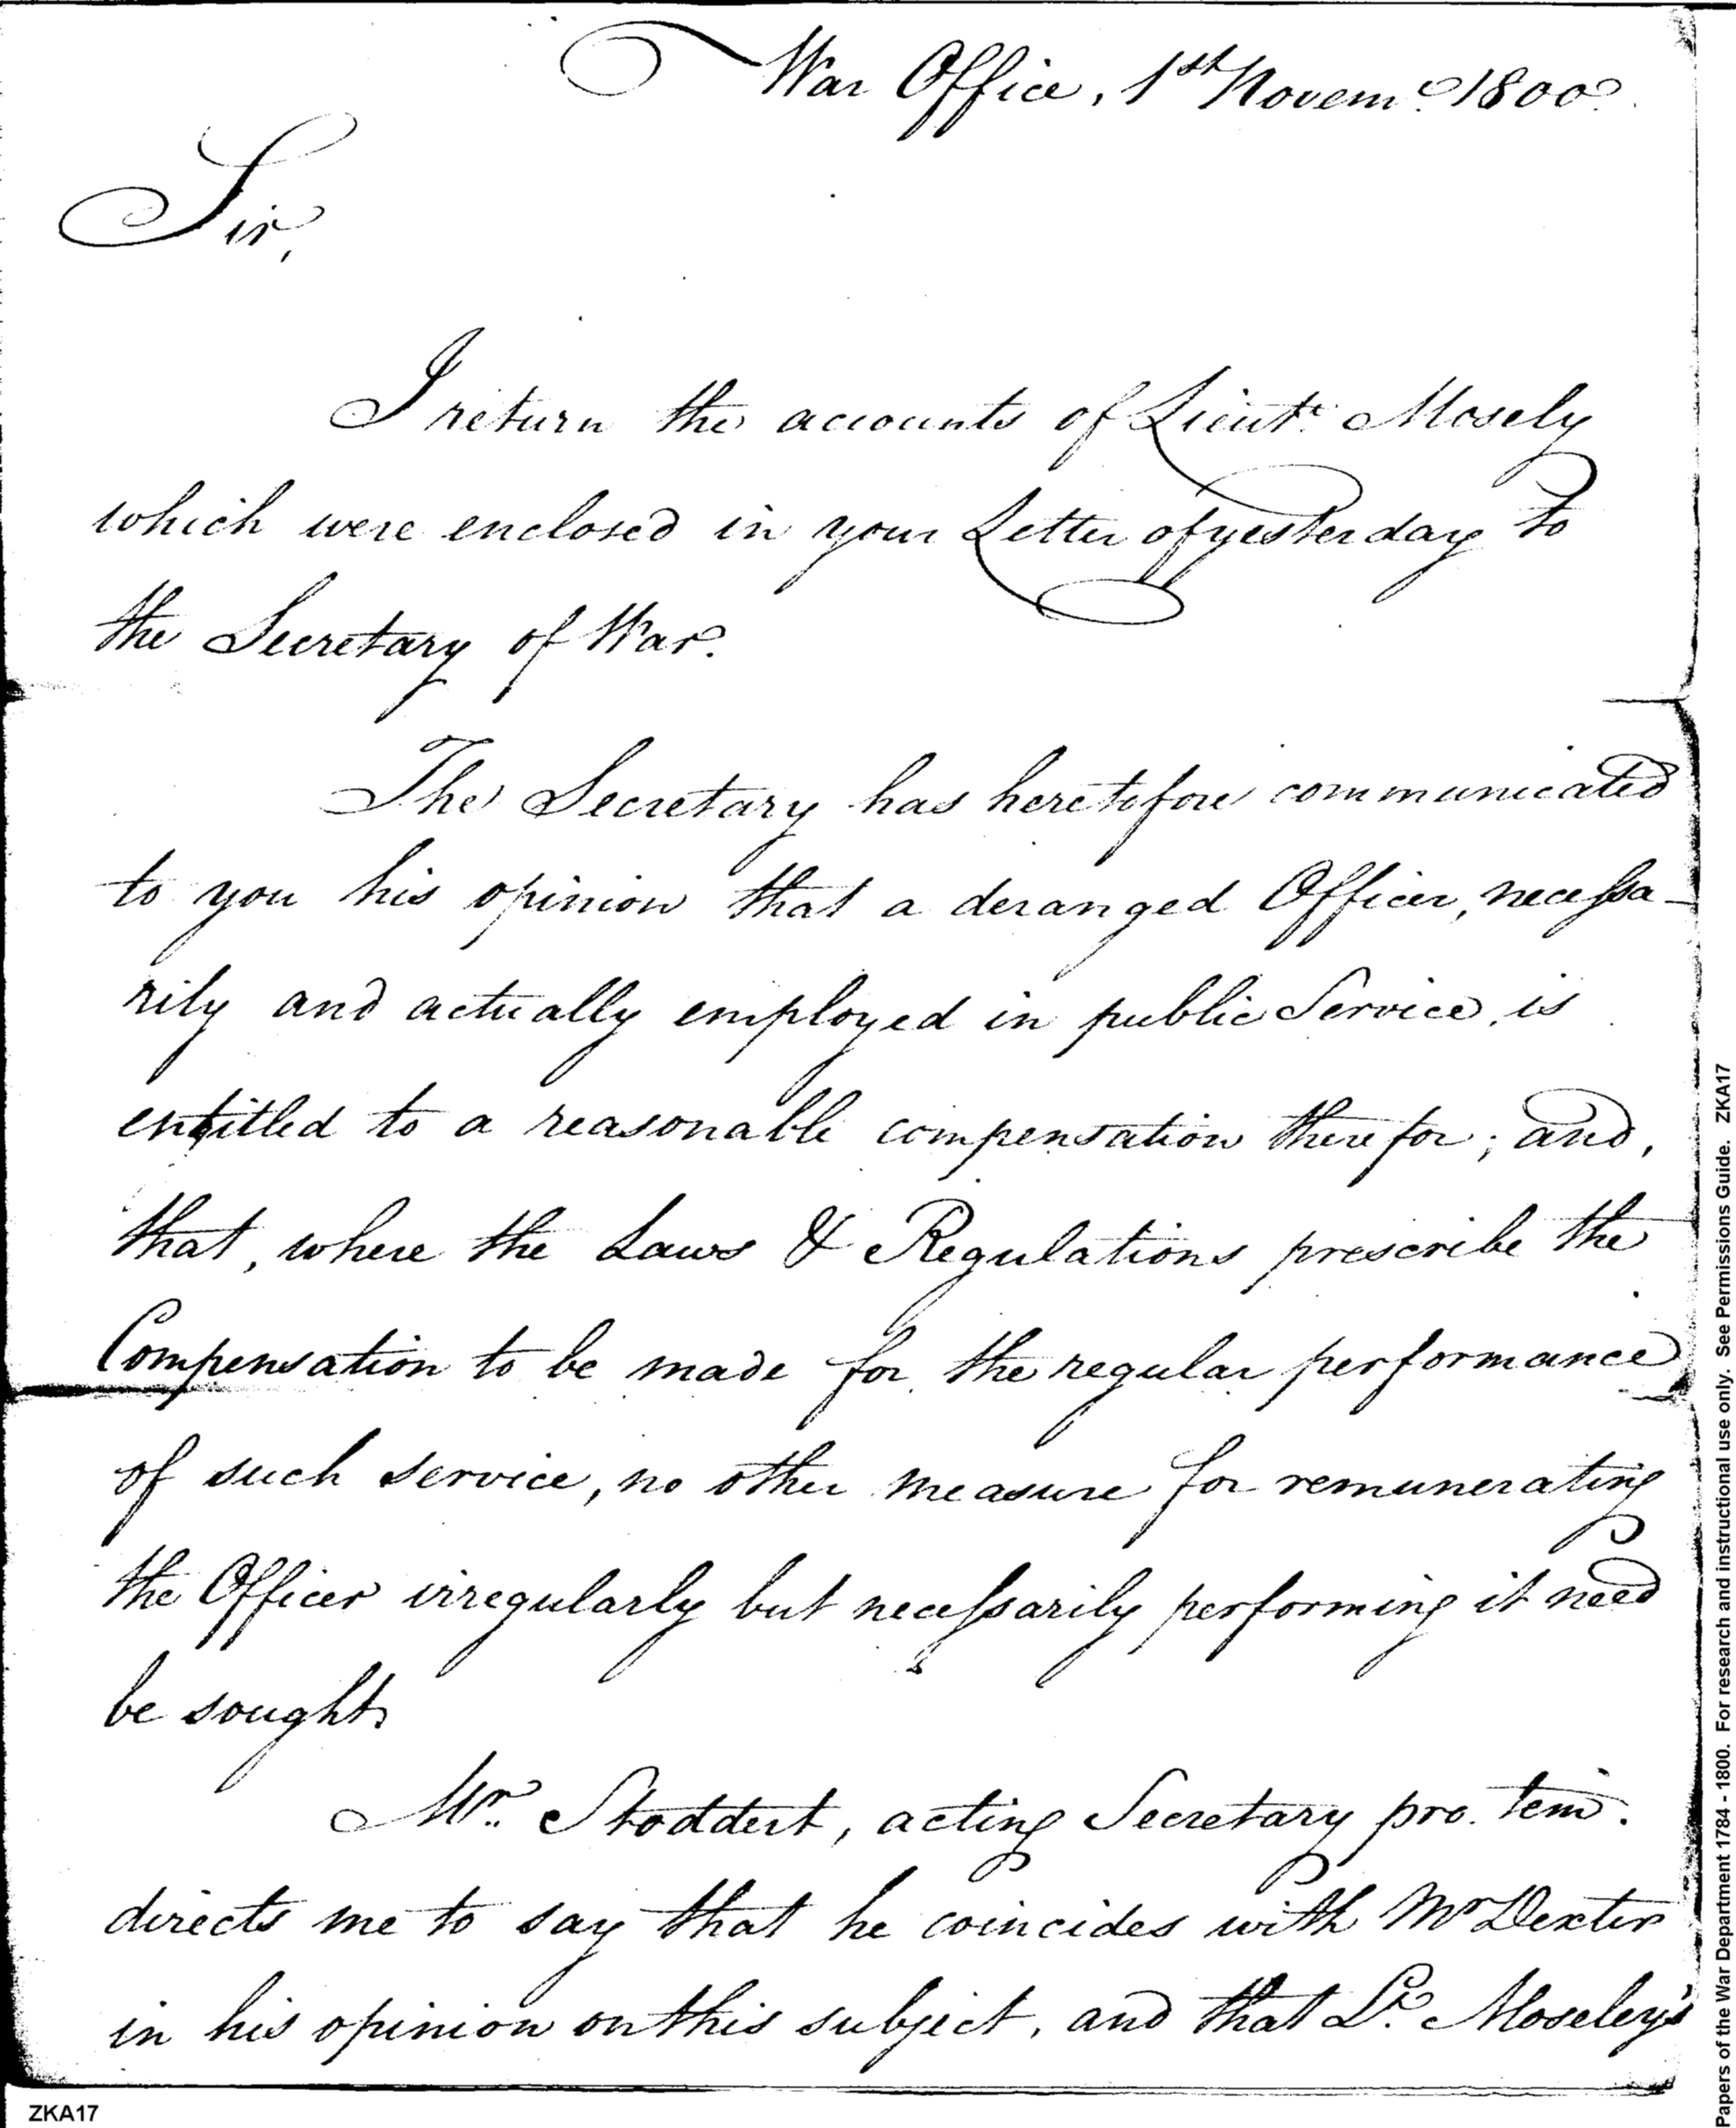 War Office, 1st Novemr. 1800.
Sir,
I return the accounts of Lieutt. Mosely
which were enclosed in your Letter of yesterday to
the Secretary of War.
The Secretary has heretofore communicated
to you his opinion that a deranged Officer, necessa-
rily and actually employed in public Service, is
entitled to a reasonable compensation therefor; and,
that, where the Laws & Regulations prescribe the
Compensation to be made for the regular performance
of such service, no other measure for remunerating
the Officer irregularly but necessarily performing it need
be sought.
Mr. Stoddert, acting Secretary pro. tem.
directs me to say that he coincides with Mr Dexter
in his opinion on this subject, and that Lt. Moseley's
ZKA17
Papers of the War Department 1784 - 1800. For research and instructional use only. See Permissions Guide. ZKA17